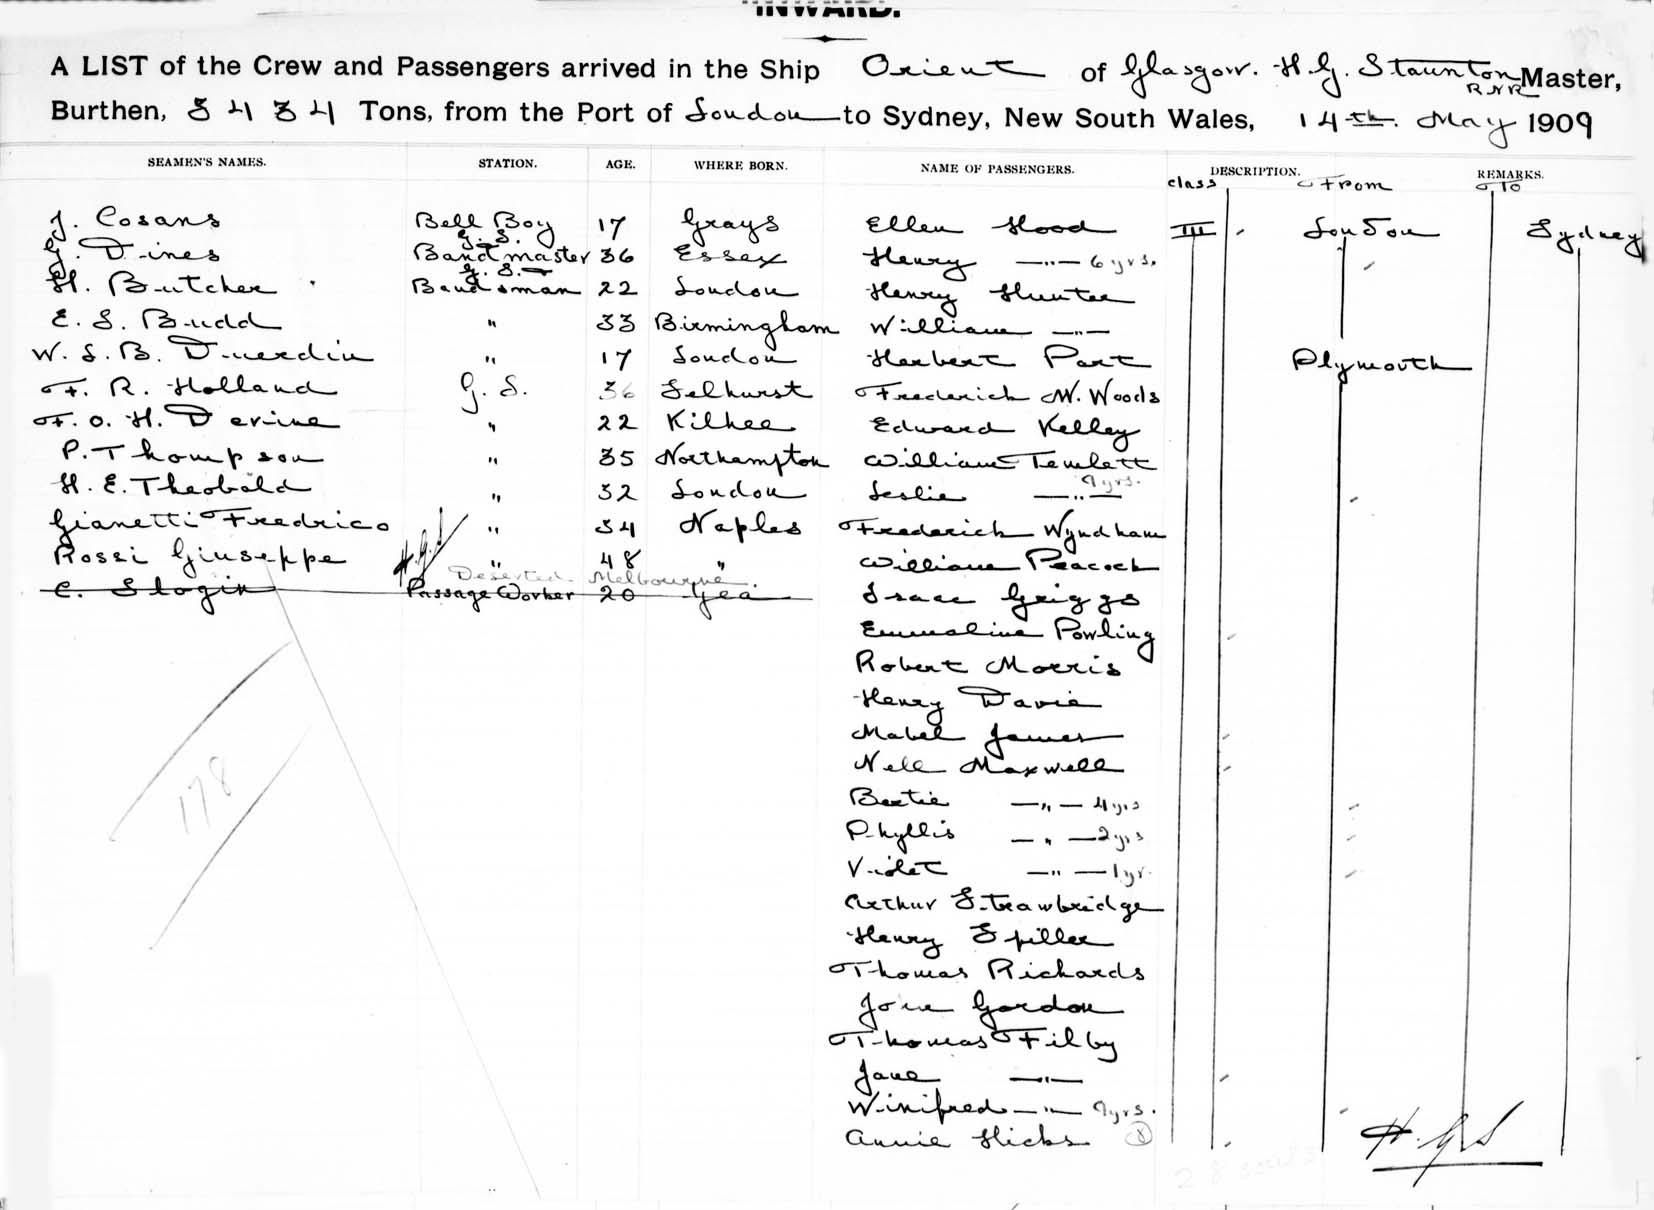 INWARD.
A LIST of the Crew and Passengers arrived in the Ship Orient of Glasgow. H. G. Staunton R N R Master,
Burthen, 5434 Tons, from the Port of London to Sydney, New South Wales, 14th. May 1909
SEAMEN'S NAMES. STATION. AGE. WHERE BORN. NAME OF PASSENGERS. DESCRIPTION. REMARKS.
class From To
J. Cosans Bell Boy 17 Grays Ellen Hood III London Sydney
G. Dines G.S. Bandmaster 36 Essex Henry —"— 6 yrs.
H. Butcher G.S. Bandsman 22 London Henry Hunter
E. S. Budd " 33 Birmingham William —"—
W. S. B. Duerdin " 17 London Herbert Part Plymouth
F. R. Holland G. S. 36 Selhurst Frederick W. Woods
F. O. H. Devine " 22 Kilkee Edward Kelley
P. Thompson " 35 Northampton William Temlett
H. E. Theobald " 32 London Leslie —"— 9 yrs.
Gianetti Fredrico " 34 Naples Frederick Wyndham
Rossi Giuseppe " 48 " William Peacock
H.G.S
Deserted Melbourne.
C. Slogin Passage Worker 20 Yea Isaac Griggs
Emmaline Powling
Robert Morris
Henry Davie
Mabel James
Nell Maxwell
Bertie —"— 4 yrs
Phyllis —"— 2 yrs
Violet —"— 1 yr.
178
Arthur Strawbridge
Henry Spiller
Thomas Richards
John Gordon
Thomas Filby
Jane —"—
Winifred —"— 9 yrs.
Annie Hicks 8
H. G. S
28 souls